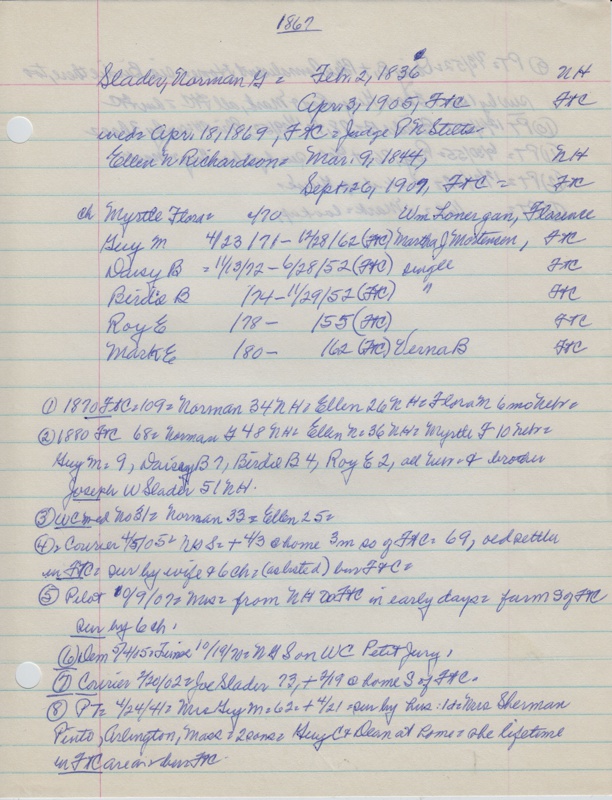 1867
Slader, Norman G = Feb. 2, 1836 NH
Apr. 3, 1905, FtC FtC
wed = Apr. 18, 1869, FtC = Judge P N Stilts
Ellen N Richardson = Mar. 9, 1844, NH
Sept. 26, 1907, FtC = FtC
ch Myrtle Flora = 2/70 Wm Lonergan, Florence
Guy M 4/23/71 - 12/28/62 (FtC) Martha J Mortensen, FtC
Daisy B = 11/13/72 - 6/28/52 (FtC) single FtC
Birdie B /74 - 11/29/52 (FtC) " FtC
Roy E /78 - /55 (FtC) FtC
Mark E /80 - /62 (FtC) Verna B FtC
① 1870 FtC = 109 = Norman 34 NH = Ellen 26 NH = Flora M 6 mo Nebr =
② 1880 FtC 68 = Norman G 48 NH = Ellen N = 36 NH = Myrtle F 10 Nebr =
Guy M = 9, Daisy B 7, Birdie B 4, Roy E 2, all Nebr = & brother
Joseph W Slader 51 NH.
③ WC wed No 31 = Norman 33 = Ellen 25 =
④ = Courier 4/5/05 = NG S = + 4/3 @ home 3 m so of FtC = 69, old settler
in FtC = sur by wife & 6 ch = (as listed) bur FtC =
⑤ Pilot 10/9/07 = Mrs = from NH to FtC in early days = farm S of FtC
sur by 6 ch.
⑥ Dem 10/19/70 = NG S on WC Petit Jury.
⑦ Courier 2/20/02 = Joe Slader 73, + 2/19 @ home S of FtC.
⑧ PT = 4/24/41 = Mrs Guy M = 62 = + 4/21 = sur by hus : 1 d = Mrs Sherman
Pinto, Arlington, Mass = 2 sons = Guy C & Dean at home = she lifetime
in FtC area = bur FtC.